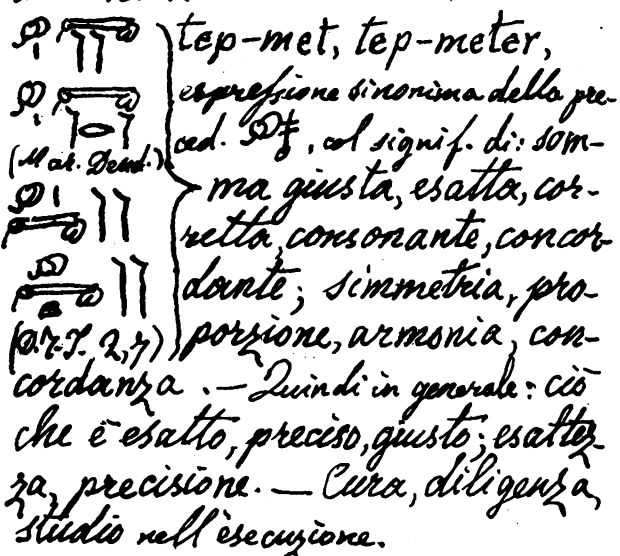 tep-met, tep-meter,
espressione sinonima della pre-
ced. , col signif. di: som-
(Mar. Dend.)
ma giusta, esatta, cor-
retta, consonante, concor-
dante; simmetria, pro-
porzione, armonia, con-
cordanza . — Quindi in generale: ciò
che è esatto, preciso, giusto; esattez-
za, precisione. — Cura, diligenza,
studio nell'esecuzione.